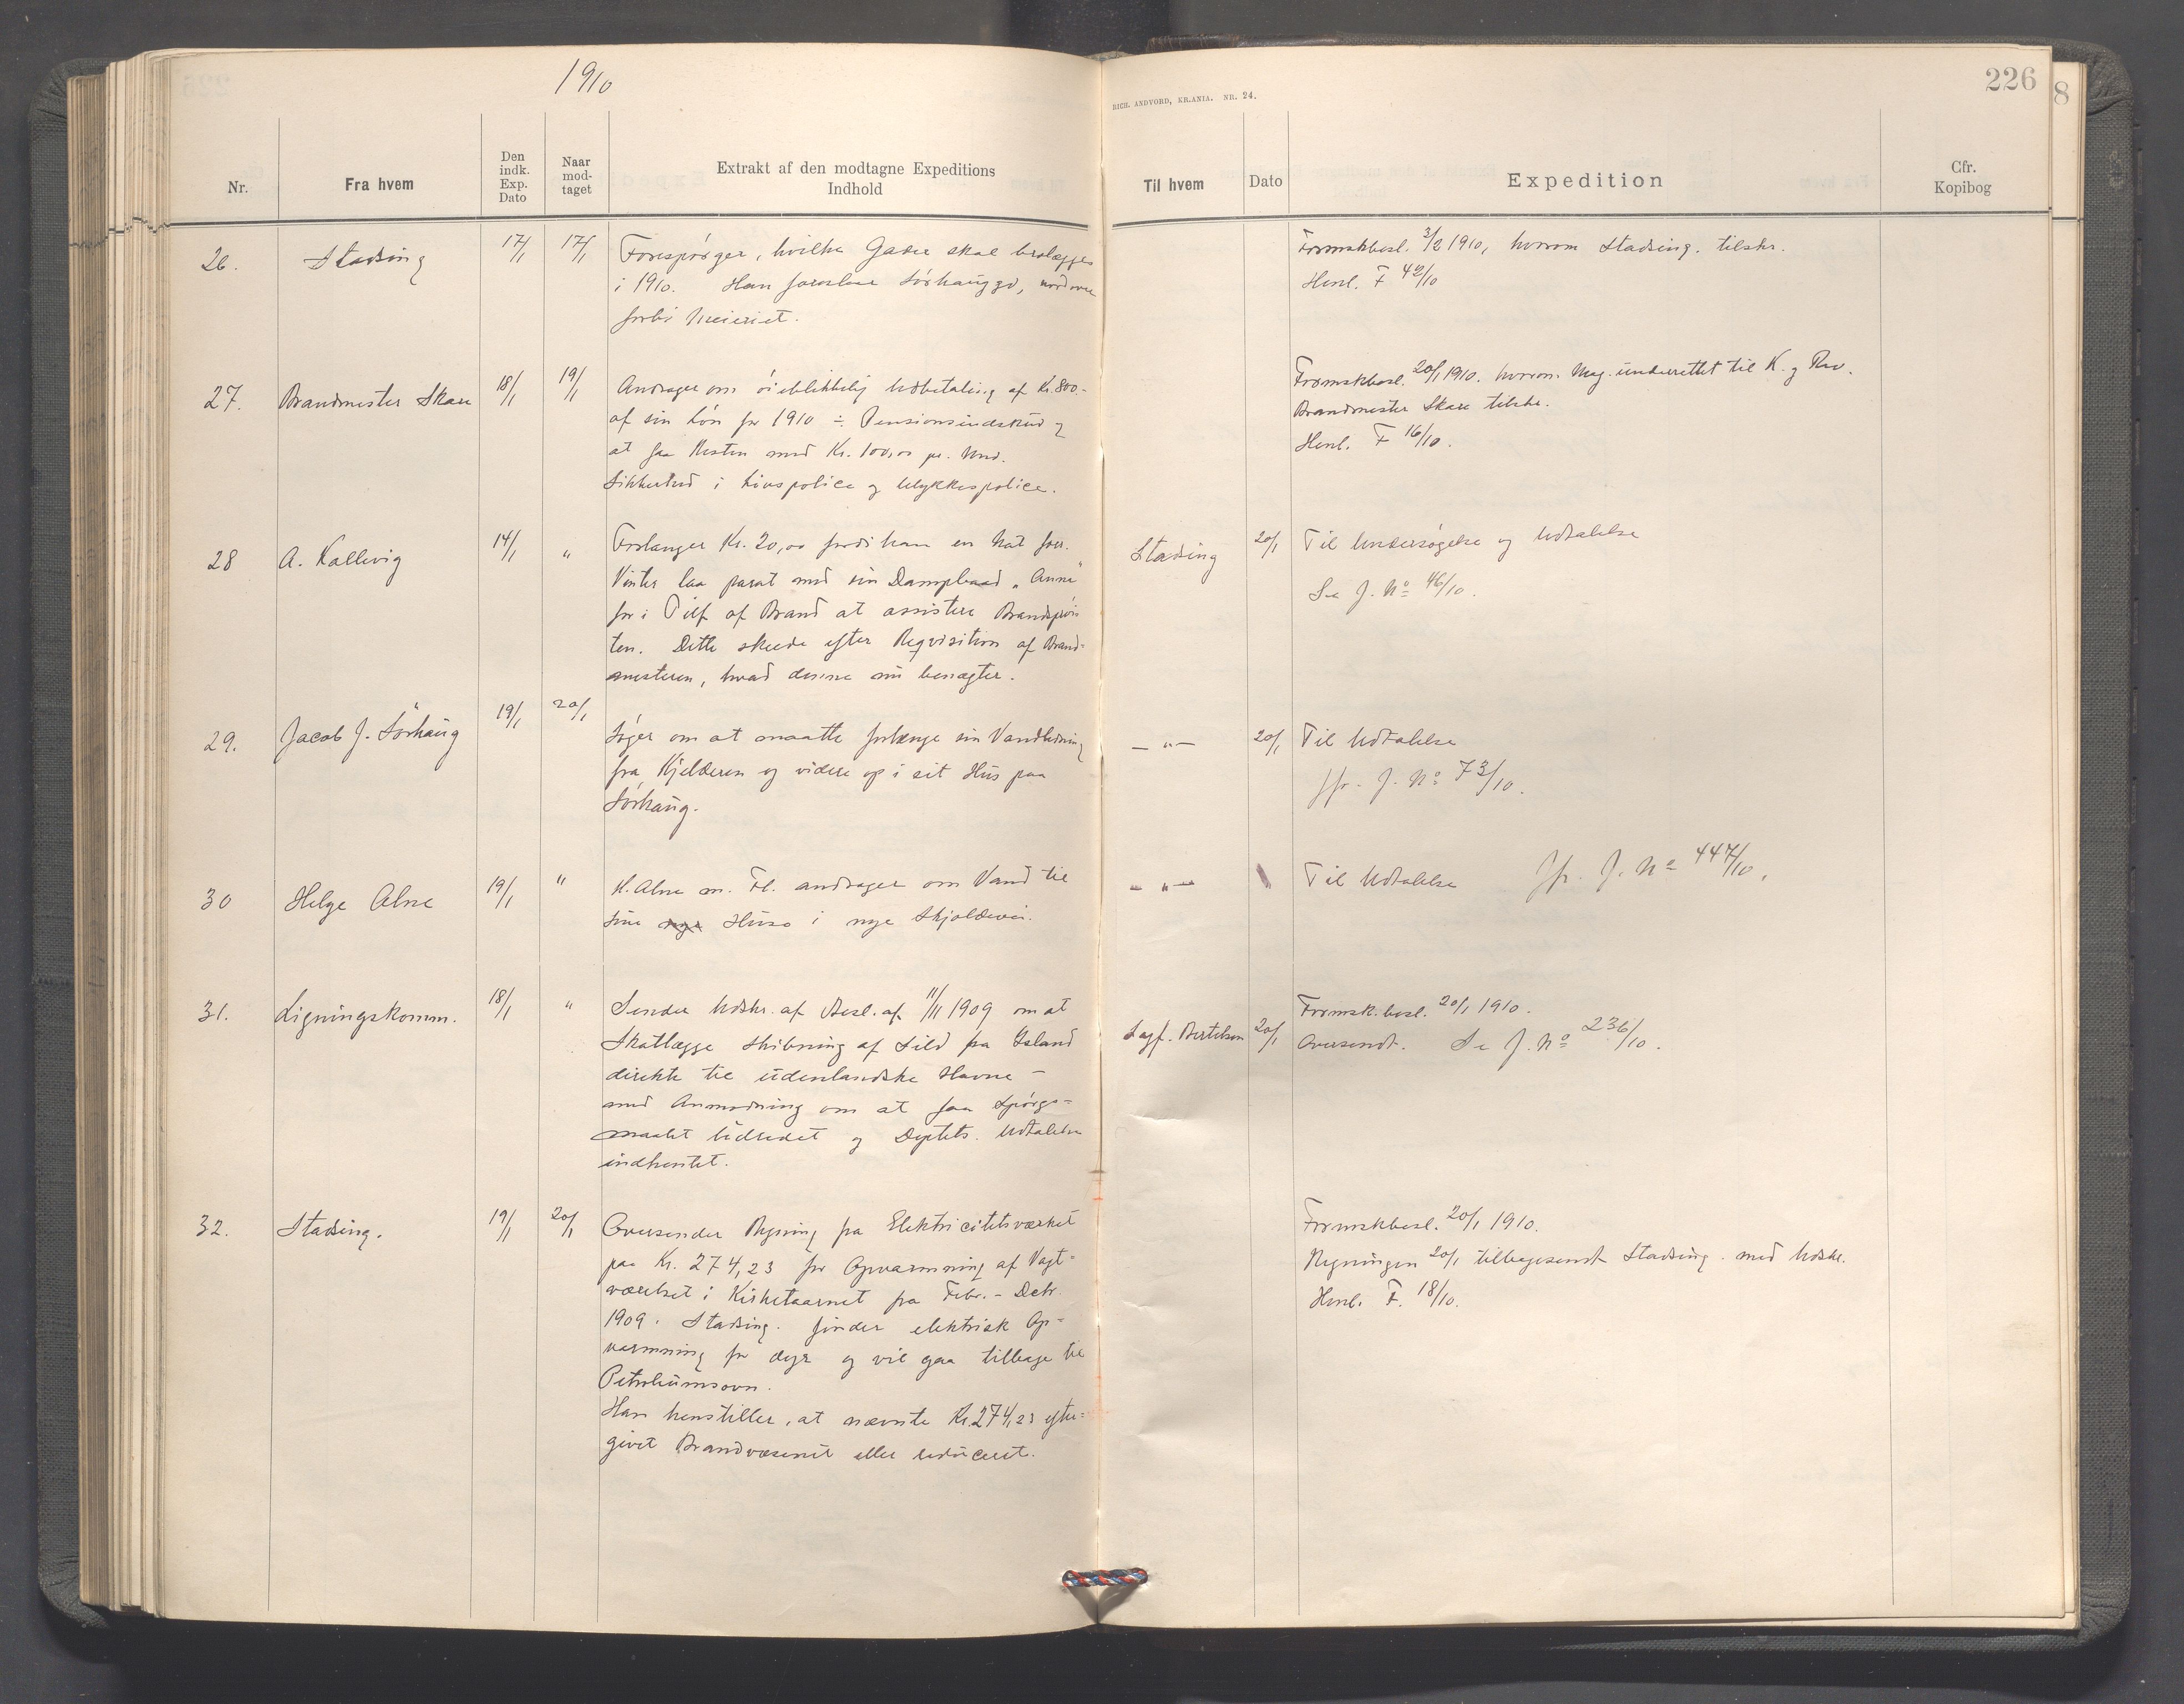 1910
RICH. ANDVORD, KR.ANIA. NR. 24.
226
8
Nr.
Fra hvem
Den indk. Exp. Dato
Naar mod- taget
Extrakt af den modtagne Expeditions Indhold
Til hvem
Dato
Expedition
Cfr. Kopibog
26. Stadsing 17/1 17/1 Forespørger, hvilke Gader skal brolægges
i 1910. Han foreslaar Sørhauggd, nordover
forbi Meieriet.
Formskbesl. 3/2 1910, hvorom Stadsing. tilskr.
Henl. F 42/10
27. Brandmester Skare 18/1 19/1 Andrager om øieblikkelig Udbetaling af Kr. 800.-
af sin Løn for 1910 ÷ Pensionsindskud og
at faa Resten med Kr. 100,00 pr. Mnd.
Sikkerhed i Livspolice og Ulykkespolice.
Formskbesl. 20/1 1910. hvorom Mag. underrettet til K. og Rev.
Brandmester Skare tilskr.
Henl. F 16/10.
28 A. Kallevig 14/1 " Forlanger Kr. 20,00 fordi han en Nat forr.
Vinter laa parat med sin Dampbaad "Anna"
for i Tilf af Brand at assistere Brandsprøi
ten. Dette skeede efter Reqvisition af Brand-
mesteren, hvad denne nu benægter.
Stadsing 20/1 Til Undersøgelse og Udtalelse
Se J. No 46/10.
29. Jacob J. Sørhaug 19/1 20/1
Søger om at maatte forlænge sin Vandledning
fra Kjelderen og videre op i sit Hus paa
Sørhaug.
— " — 20/1 Til Udtalelse
Jfr. J. No 73/10.
30 Helge Alne 19/1 " H. Alne m. Fl. andrager om Vand til
sine nye Huse i nye Skjoldevei.
— " — Til Udtalelse Jfr. J. No 447/10.
31. Ligningskomm. 18/1 " Sender Udskr. af Besl. af 11/11 1909 om at
Skatlægge Skibning af Sild fra Island
direkte til udenlandske Havne —
med Anmodning om at faa Spørgs-
maalet udredet og Deptets. Udtalelse
indhentet.
Formsk. besl. 20/1 1910.
Sagf. Bertelsen 20/1 Oversendt. Se J. No 236/10.
32. Stadsing. 19/1 20/1 Oversender Regning fra Elektricitetsværket
paa Kr. 274,23 for Opvarmning af Vagt-
værelset i Kirketaarnet fra Febr. - Debr.
1909. Stadsing. finder elektrisk Op-
varmning for dyr og vil gaa tilbage til
Petroleumsovn.
Han henstiller, at nævnte Kr. 274,23 efter-
givet Brandvæsenet eller reduceret.
Formskbesl. 20/1 1910.
Regningen 20/1 tilbagesendt Stadsing. med Udskr.
Henl. F. 18/10.